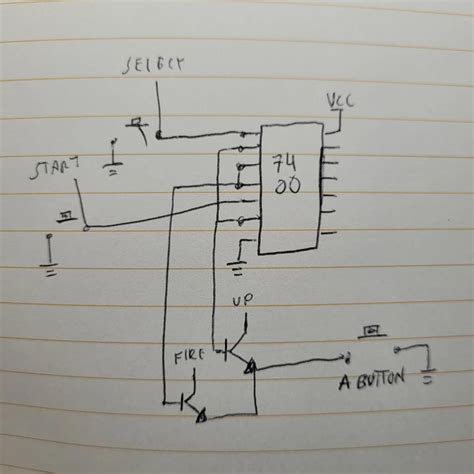 SELECT
VCC
START
74
00
UP
FIRE
A BUTTON